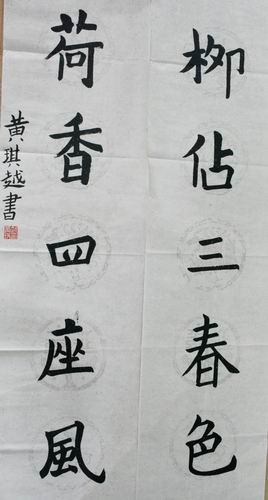 柳佔三春色
荷香四座風
黄琪越書